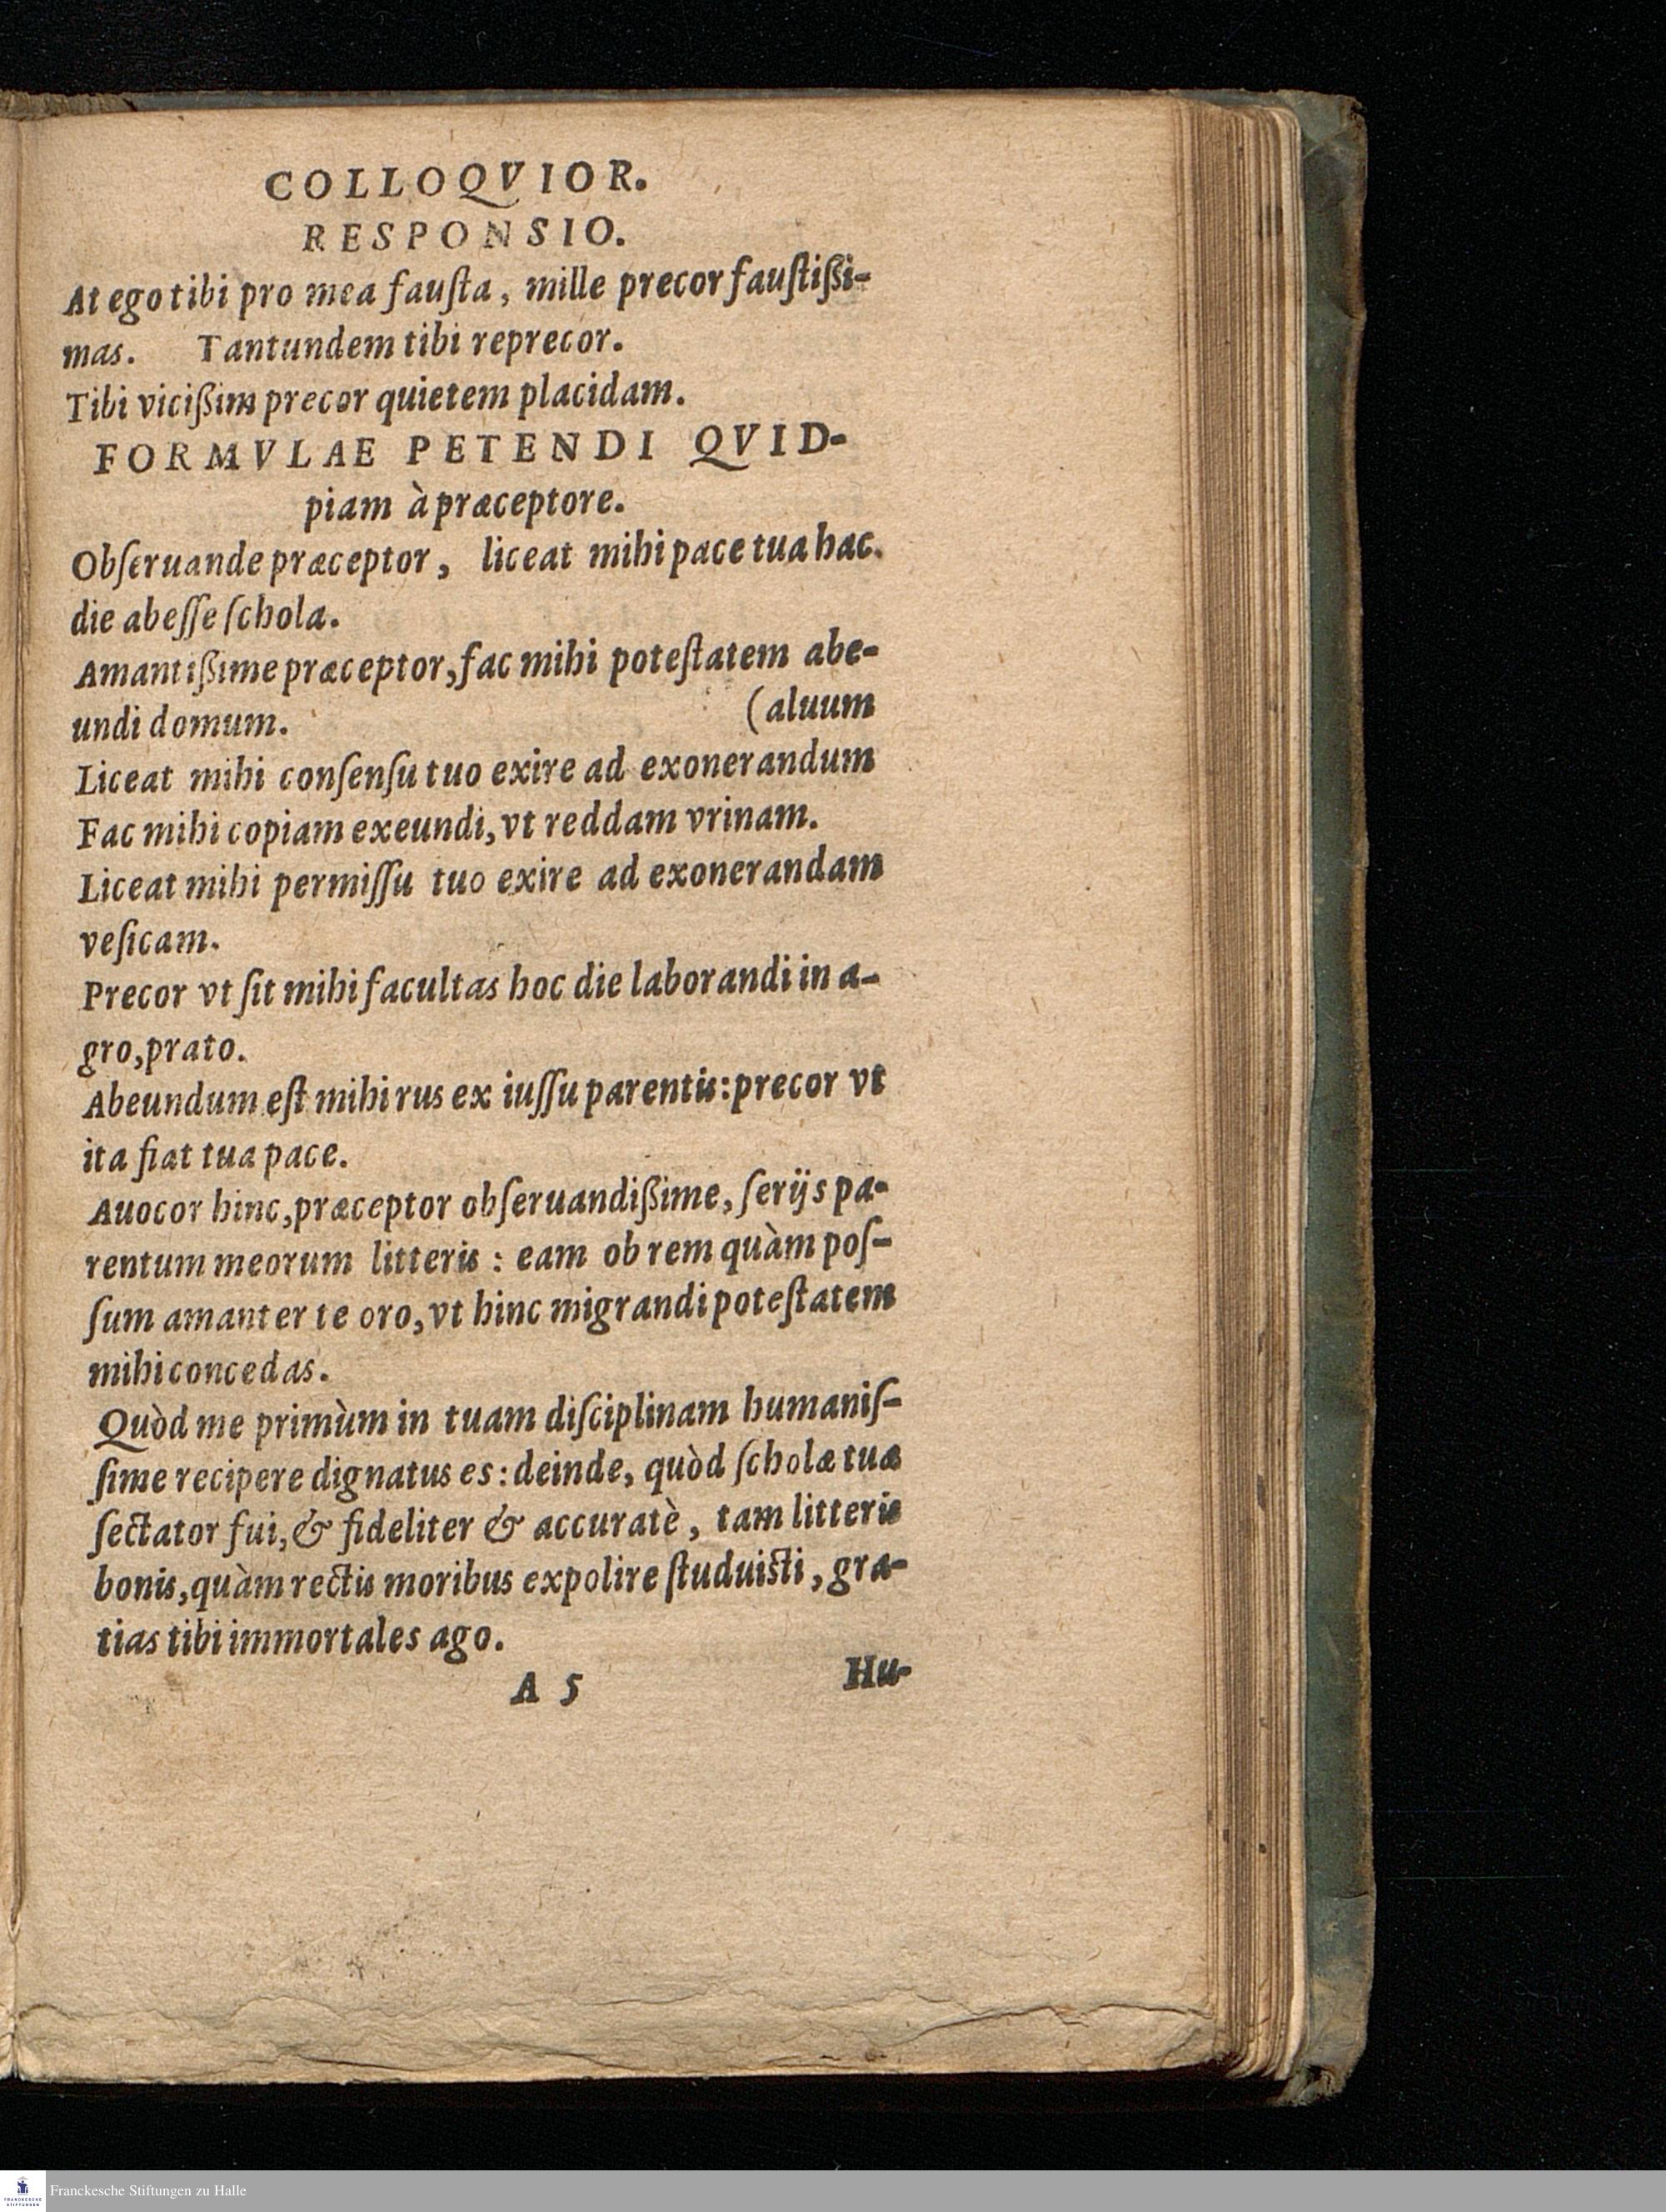 COLLOQVIOR.
RESPONSIO.
At ego tibi pro mea fauſta, mille precor fauſtißi-
mas. Tantundem tibi reprecor.
Tibi vicißim precor quietem placidam.
FORMVLAE PETENDI QVID-
piam à præceptore.
Obſeruande præceptor, liceat mihi pace tua hac.
die abeſſe ſchola.
Amantißime præceptor, fac mihi poteſtatem abe-
undi domum. (aluum
Liceat mihi conſenſu tuo exire ad exonerandum
Fac mihi copiam exeundi, vt reddam vrinam.
Liceat mihi permiſſu tuo exire ad exonerandam
veſicam.
Precor vt ſit mihi facultas hoc die laborandi in a-
gro, prato.
Abeundum eſt mihi rus ex iuſſu parentis: precor vt
ita fiat tua pace.
Auocor hinc, præceptor obſeruandißime, ſerijs pa-
rentum meorum litteris: eam ob rem quàm poſ-
ſum amanter te oro, vt hinc migrandi poteſtatem
mihi concedas.
Quòd me primùm in tuam diſciplinam humaniſ-
ſime recipere dignatus es: deinde, quòd ſcholæ tuæ
ſectator fui, & fideliter & accuratè, tam litteris
bonis, quàm rectis moribus expolire ſtuduiſti, gra-
tias tibi immortales ago.
A 5 Hu-
FRANCKESCHE STIFTUNGEN
Franckesche Stiftungen zu Halle